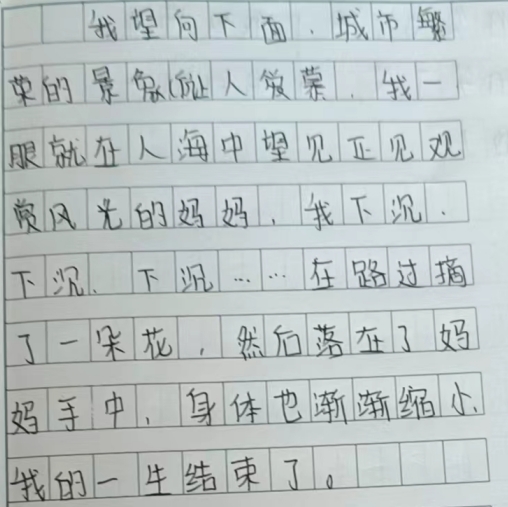 我望向下面，城市繁
荣的景象让人羡慕，我一
眼就在人海中望见正见观
赏风光的妈妈，我下沉，
下沉、下沉……在路过摘
了一朵花，然后落在了妈
妈手中，身体也渐渐缩小，
我的一生结束了。